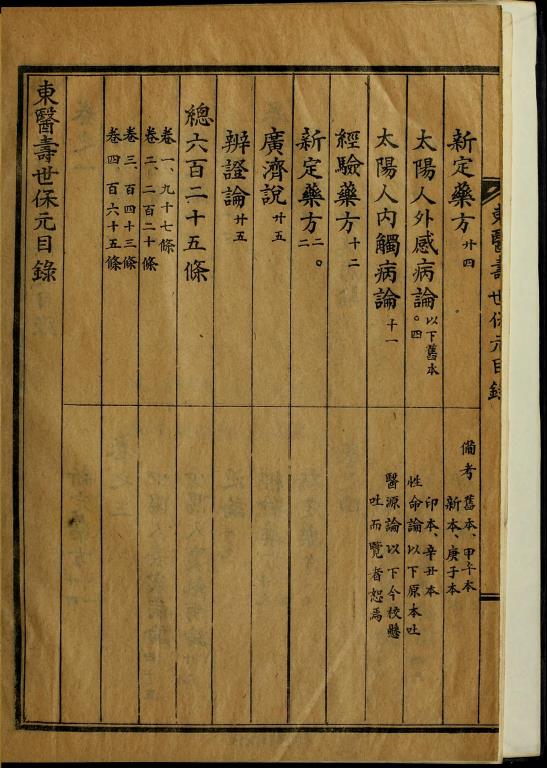 東醫壽世保元目錄
新定藥方 廿四
太陽人外感病論 以下舊本 四
太陽人內觸病論 十一
經驗藥方 十二
新定藥方 二
廣濟說 廿五
辨證論 廿五
總六百二十五條
卷一、九十七條
卷二、二百二十條
卷三、百四十三條
卷四、百六十五條
東醫壽世保元目錄
備考 舊本、甲午本
新本、庚子本
印本、辛丑本
性命論以下原本吐
醫源論以下今校懸
吐而覽者恕焉